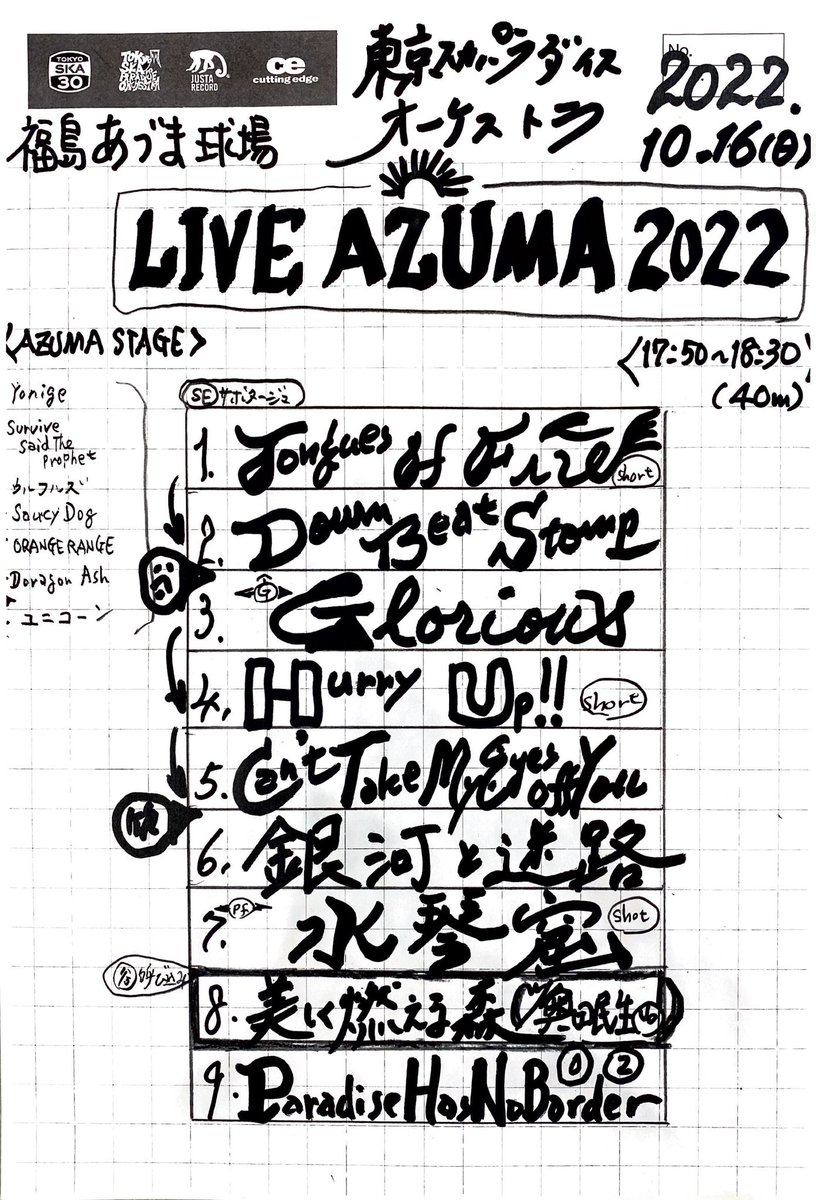 TOKYO SKA 30
TOKYO SKA PARADISE ORCHESTRA
JUSTA RECORD
ce
cutting edge
No.
東京スカパラダイス
オーケストラ
2022.
10.16(日)
福島あづま球場
LIVE AZUMA 2022
<AZUMA STAGE>
<17:50~18:30
(40m)
Yonige
Survive
Said The
Prophet
ウルフルズ
Saucy Dog
ORANGE RANGE
Doragon Ash
ユニコーン
SE サボタージュ
1. Tongues of Fire short
2. Down Beat Stomp
3. G Glorious
4. Hurry Up!! short
5. Can't Take My Eyes off You
6. 銀河と迷路
7. Pf 水琴窟 shot
谷 呼び込み
8. 美しく燃える森 (奥田民生)
9. Paradise Has No Border
0 2